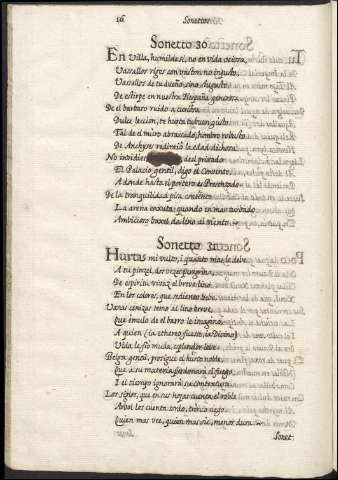 16 Sonettos
Sonetto 30
En villa, humilde sí, no en vida ociosa,
Vassallos riges con
Vassallos de tu dueño, sino Augusto,
De estirpe en nuestra España generosa.
De el barbaro ruido a
Dulce leccion, te hurta tu buen gusto,
Tal de el muro abrasado, hombro robusto
De Anchyses redimió la edad dichosa
No invidies de el privado
El Palacio gentil, digo el Convento
A donde hasta el portero es Presentado
De la tranquilidad pisa contento
La arena enxuta, quando en mar turbado
Ambicioso baxel da lino al viento
Sonetto 31
Hurtas mi vulto, i quanto mas le debe
A tu pinzel, dos vezes peregrino,
De espiritu vivaz el breve lino
En los colores, que sediento bebe.
Vanas cenizas temo al lino breve,
Que émulo de el barro le imagino,
A quien (ia ethereo fuesse, ia Divino)
Vida le fió muda, esplendor leve.
Belga gentil, prosigue el hurto noble,
Que a su materia perdonará el fuego,
I el tiempo ignorará su contextura
Los siglos, que en sus hojas cuenta el roble
Arbol los cuenta sordo, tronco ciego
Quien mas ve, quien mas oie, menos dura
Sonet.